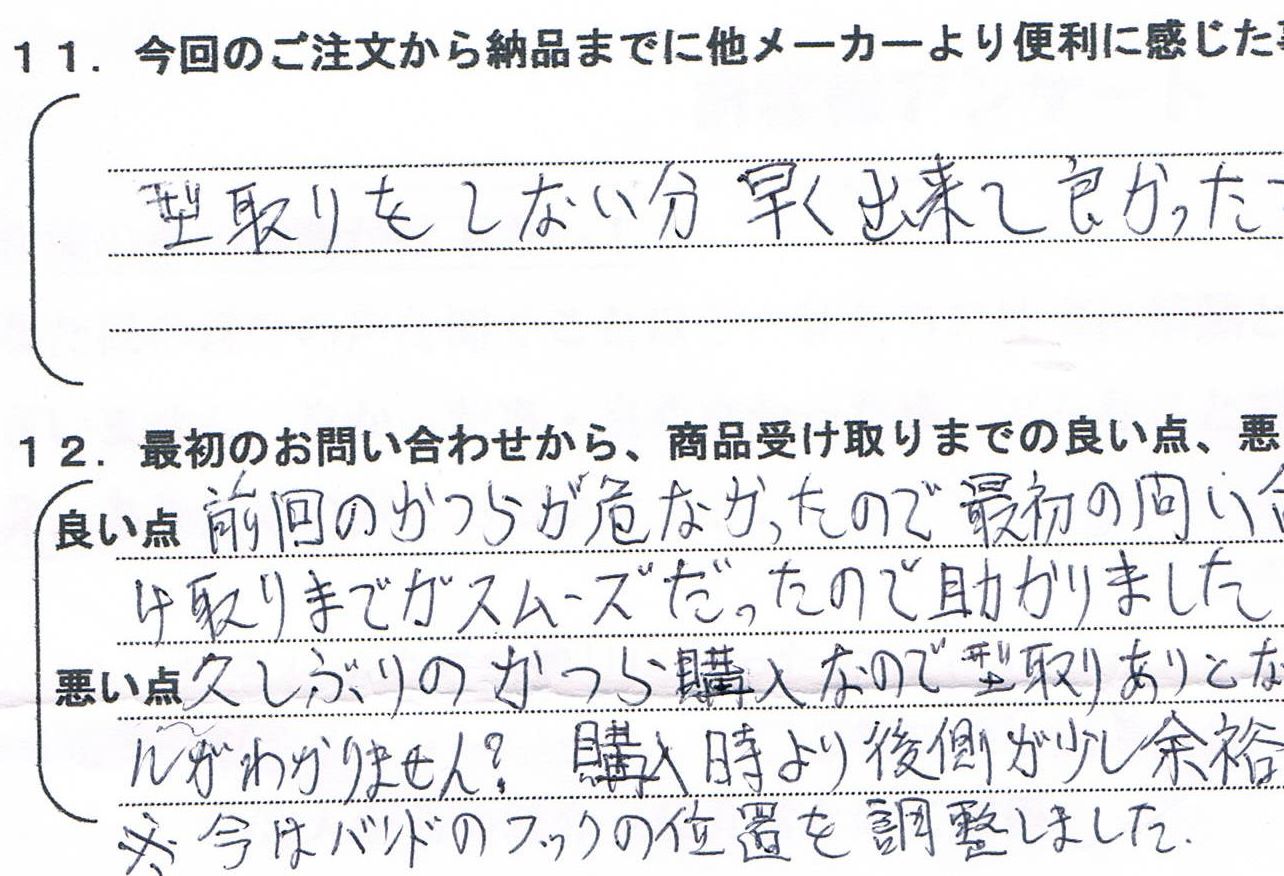 11. 今回のご注文から納品までに他メーカーより便利に感じた
型取りをしない分 早く出来て良かった
12. 最初のお問い合わせから、商品受け取りまでの良い点、悪
良い点 前回のかつらが危なかったので最初の問い合
け取りまでがスムーズだったので助かりました
悪い点 久しぶりのかつら購入なので型取りありとな
しがわかりません? 購入時より後側が少し余裕
※今はバンドのフックの位置を調整しました.